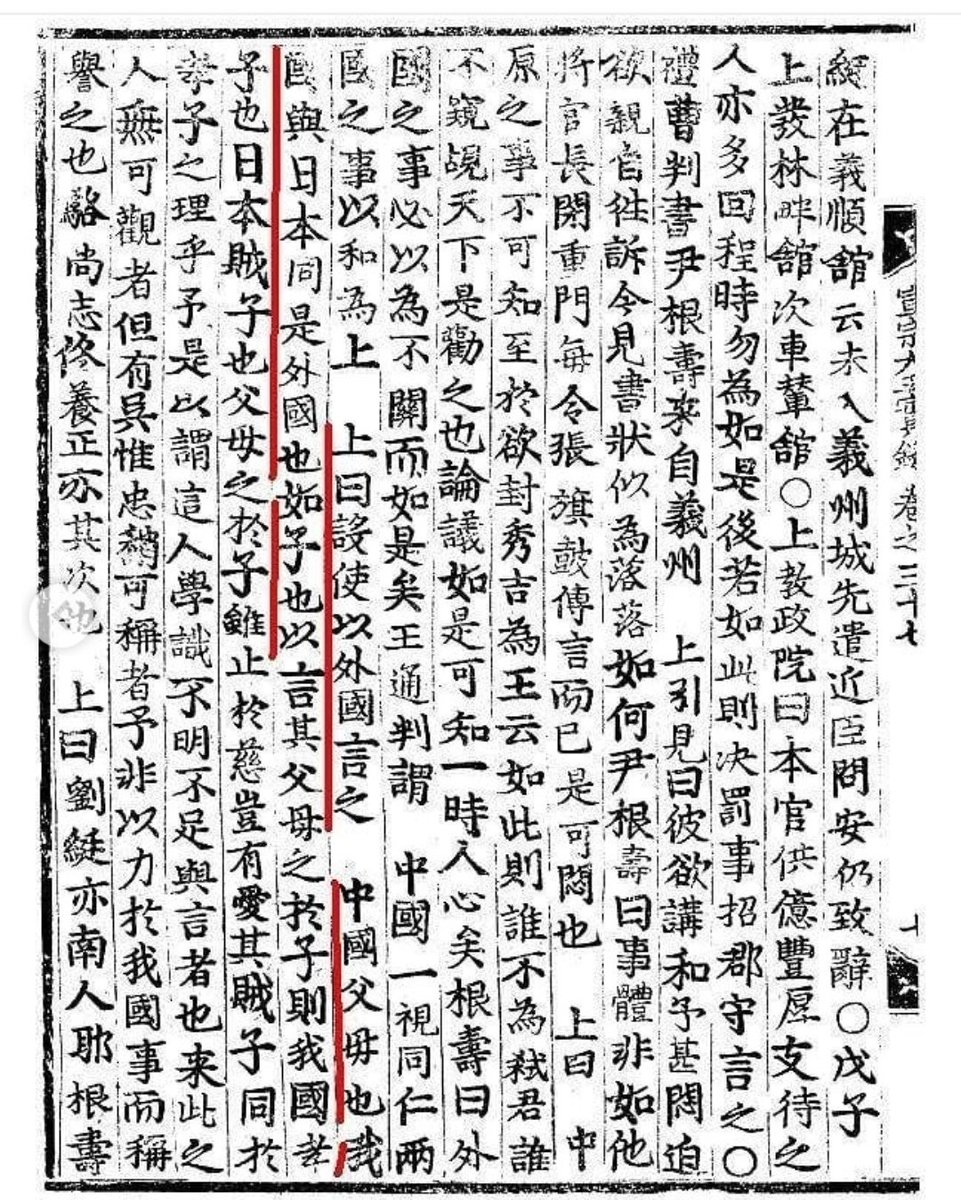 宣宗大王實錄 卷之三十七 七
綎在義順舘云未入義州城先遣近臣問安仍致辭○戊子
上發林畔舘次車輦舘○上敎政院曰本官供億豐厚支待之
人亦多回程時勿為如是後若如此則决罰事招郡守言之○
禮曹判書尹根壽来自義州 上引見曰彼欲講和予甚悶迫
欲親自徃訴今見書狀似為落落如何尹根壽曰事體非如他
將官長閉重門每令張旗鼓傳言而已是可悶也 上曰 中
原之事不可知至於欲封秀吉為王云如此則誰不為弑君誰
不窺覘天下是勸之也論議如是可知一時人心矣根壽曰外
國之事必以為不關而如是矣王通判謂 中國一視同仁兩
國之事以和為上 上曰設使以外國言之 中國父母也我
國與日本同是外國也如子也以言其父母之於子則我國孝
子也日本賊子也父母之於子雖止於慈豈有愛其賊子同於
孝子之理乎予是以謂這人學識不明不足與言者也来此之
人無可觀者但有吳惟忠稍可稱者予非以力於我國事而稱
譽之也駱尚志佟養正亦其次也 上曰劉綎亦南人耶根壽